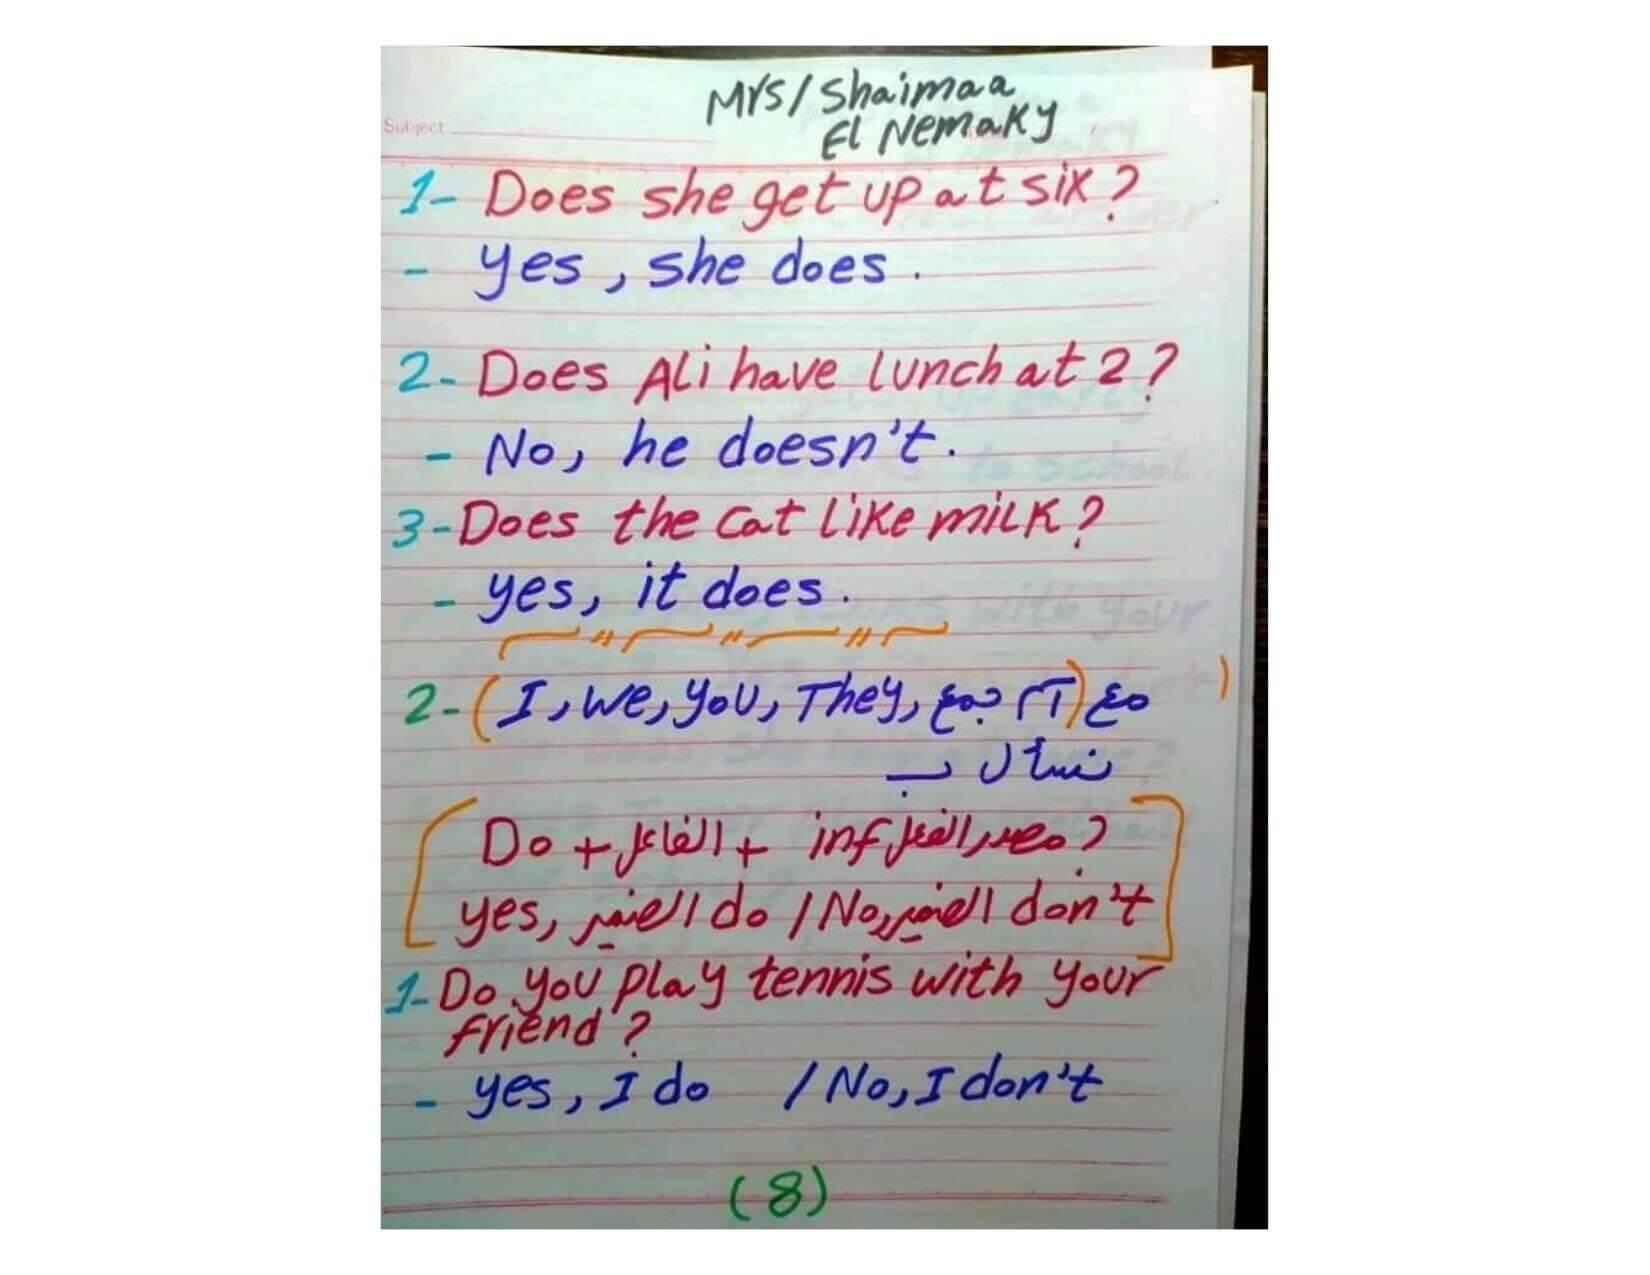 Mrs/ Shaimaa
El Nemaky
Subject
1- Does she get up at six?
- yes, she does.
2- Does Ali have lunch at 2?
- No, he doesn't.
3- Does the cat like milk?
- yes, it does.
2- (I, we, you, They, اسم جمع) مع
نسأل ب
Do + الفاعل + inf مصدر الفعل?
yes, الضمير do / No, الضمير don't
1- Do you play tennis with your
friend?
- yes, I do / No, I don't
(8)